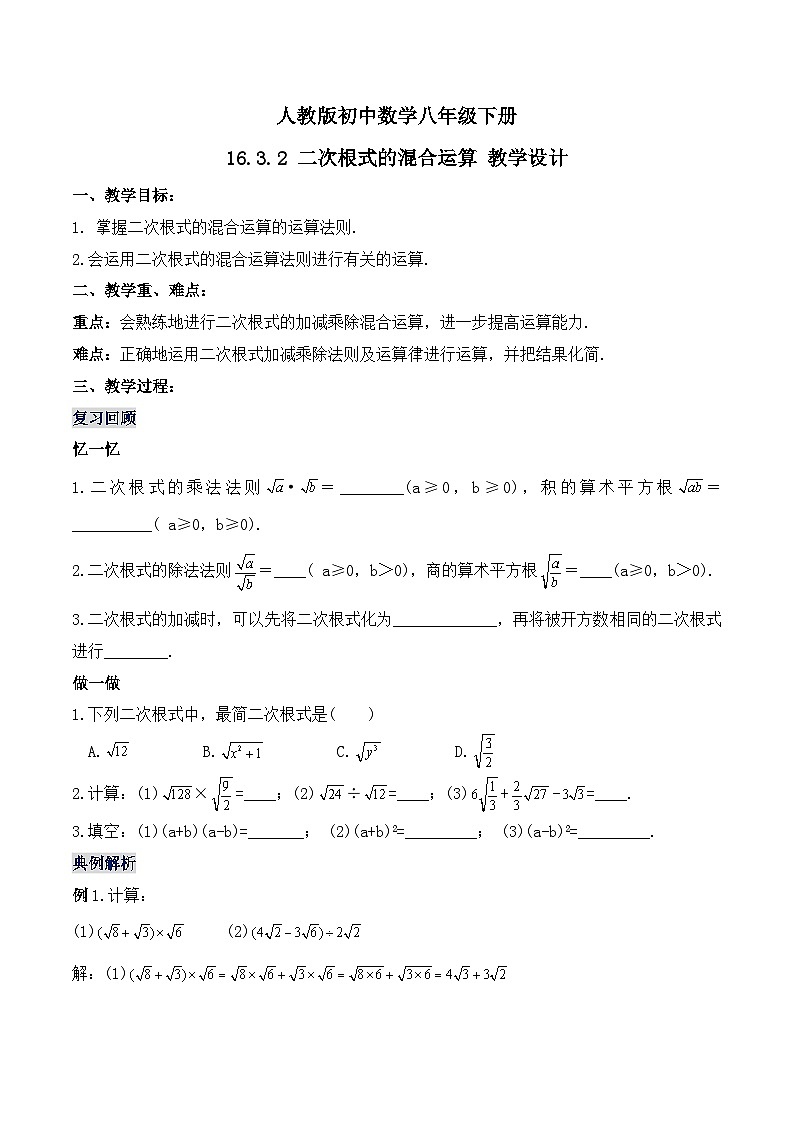 人教版初中数学八年级下册
16.3.2 二次根式的混合运算 教学设计
一、教学目标：
1. 掌握二次根式的混合运算的运算法则.
2.会运用二次根式的混合运算法则进行有关的运算.
二、教学重、难点：
重点：会熟练地进行二次根式的加减乘除混合运算，进一步提高运算能力.
难点：正确地运用二次根式加减乘除法则及运算律进行运算，并把结果化简.
三、教学过程：
复习回顾
忆一忆
1.二次根式的乘法法则√a·√b=________(a≥0，b≥0)，积的算术平方根√(ab)=
__________( a≥0，b≥0).
2.二次根式的除法法则√a/√b=____( a≥0，b＞0)，商的算术平方根√(a/b)=____(a≥0，b＞0).
3.二次根式的加减时，可以先将二次根式化为_____________，再将被开方数相同的二次根式
进行________.
做一做
1.下列二次根式中，最简二次根式是(　　)
A.√12 B.√(x²+1) C.√(y³) D.√(3/2)
2.计算：(1)√128×√(9/2)=____；(2)√24÷√12=____；(3)6√(1/3)+2/3√27-3√3=____.
3.填空：(1)(a+b)(a-b)=_______； (2)(a+b)²=_________； (3)(a-b)²=_________.
典例解析
例1.计算：
(1)(√8+√3)×√6 (2)(4√2-3√6)÷2√2
解：(1)(√8+√3)×√6=√8×√6+√3×√6=√(8×6)+√(3×6)=4√3+3√2